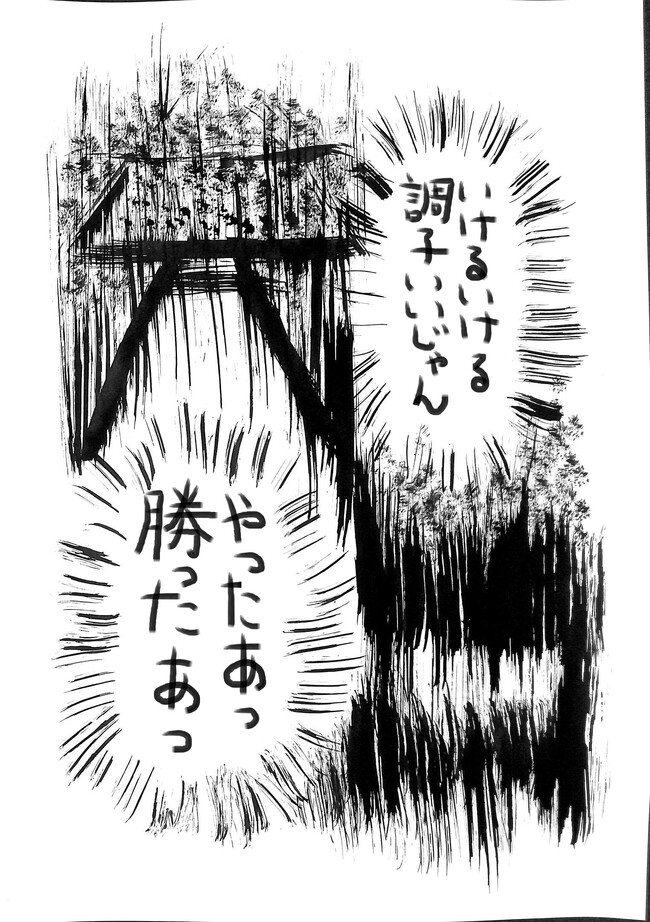 いけるいける
調子いいじゃん
やったあっ
勝ったあっ